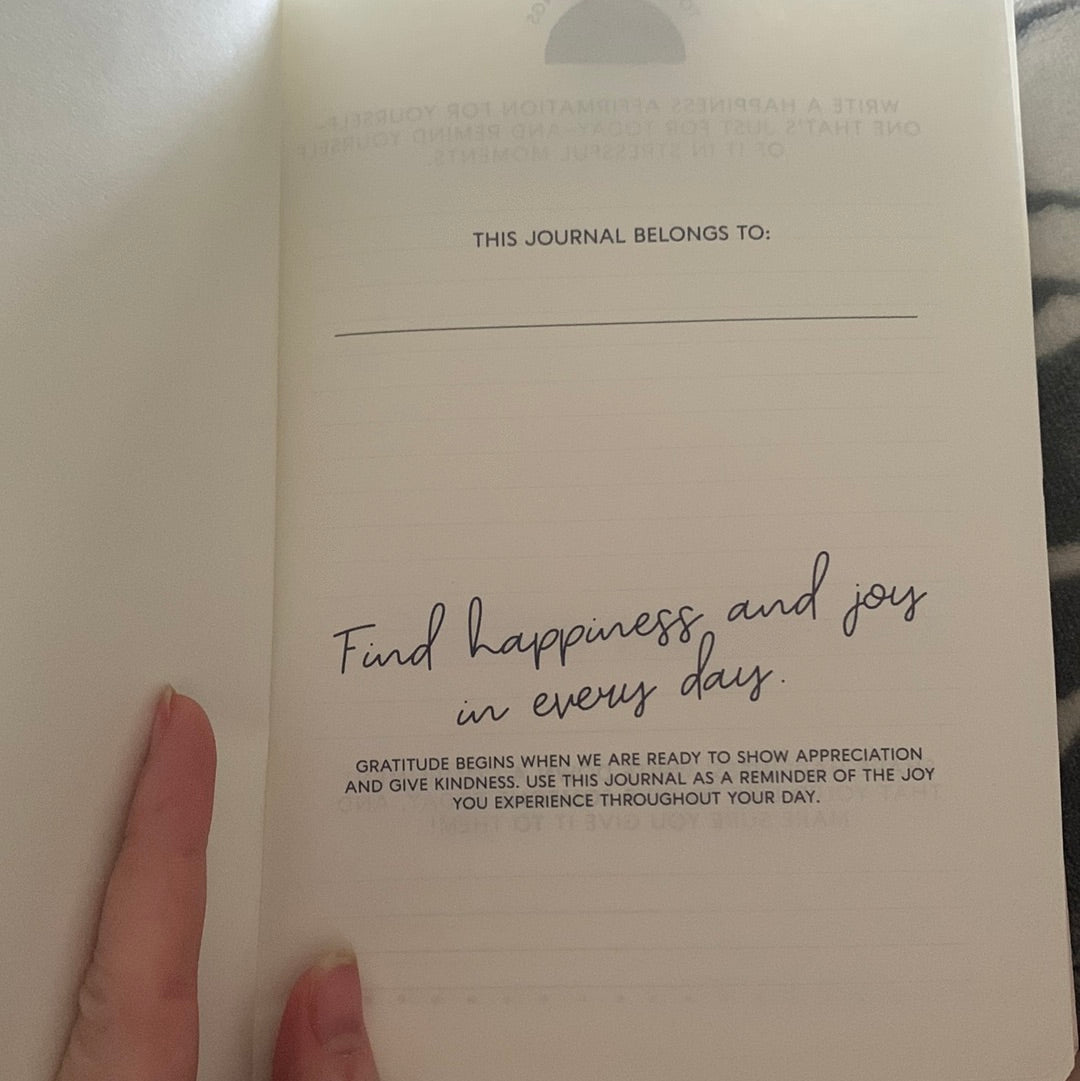 THIS JOURNAL BELONGS TO:
Find happiness and joy
in every day.
GRATITUDE BEGINS WHEN WE ARE READY TO SHOW APPRECIATION
AND GIVE KINDNESS. USE THIS JOURNAL AS A REMINDER OF THE JOY
YOU EXPERIENCE THROUGHOUT YOUR DAY.